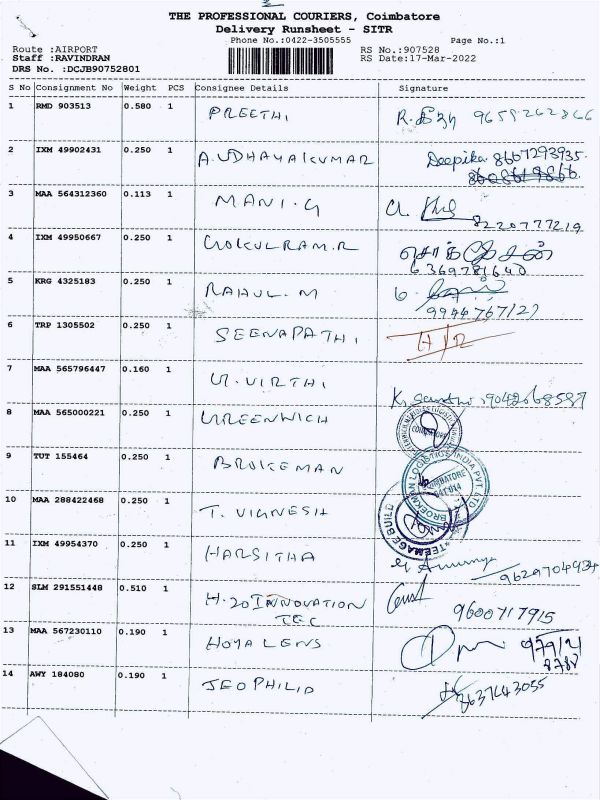 THE PROFESSIONAL COURIERS, Coimbatore
Delivery Runsheet - SITR
Phone No.:0422-3505555 Page No.:1
Route :AIRPORT RS No.:907528
Staff :RAVINDRAN RS Date:17-Mar-2022
DRS No. :DCJB90752801
S No Consignment No Weight PCS Consignee Details Signature
1 RMD 903513 0.580 1 PREETHI
2 IXM 49902431 0.250 1 A.UDHAYAKUMAR Deepika 8667293935
3 MAA 564312360 0.113 1 MANI.G
8220777219
4 IXM 49950667 0.250 1 GOKULRAM.R
6369781640
5 KRG 4325183 0.250 1 RAHUL.M
6 TRP 1305502 0.250 1 SEENAPATHI
7 MAA 565796447 0.160 1 G.VIRTHI
8 MAA 565000221 0.250 1 GREENWICH
9 TUT 155464 0.250 1 BROKEMAN
BROEKMAN LOGISTICS INDIA PVT. LTD
10 MAA 288422468 0.250 1 T. VIGNESH
TEEMAGE BUILD
11 IXM 49954370 0.250 1 HARSITHA
9629704934
12 SLM 291551448 0.510 1 H.20 INNOVATION
TEC
9600717915
13 MAA 567230110 0.190 1 HOYA LENS
14 AWY 184080 0.190 1 JEOPHILIP
8637643055